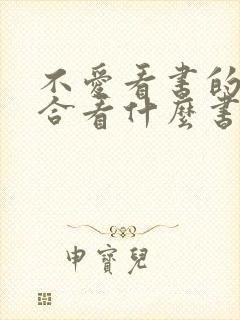 不愛看書的
合看什麼書
申寶兒